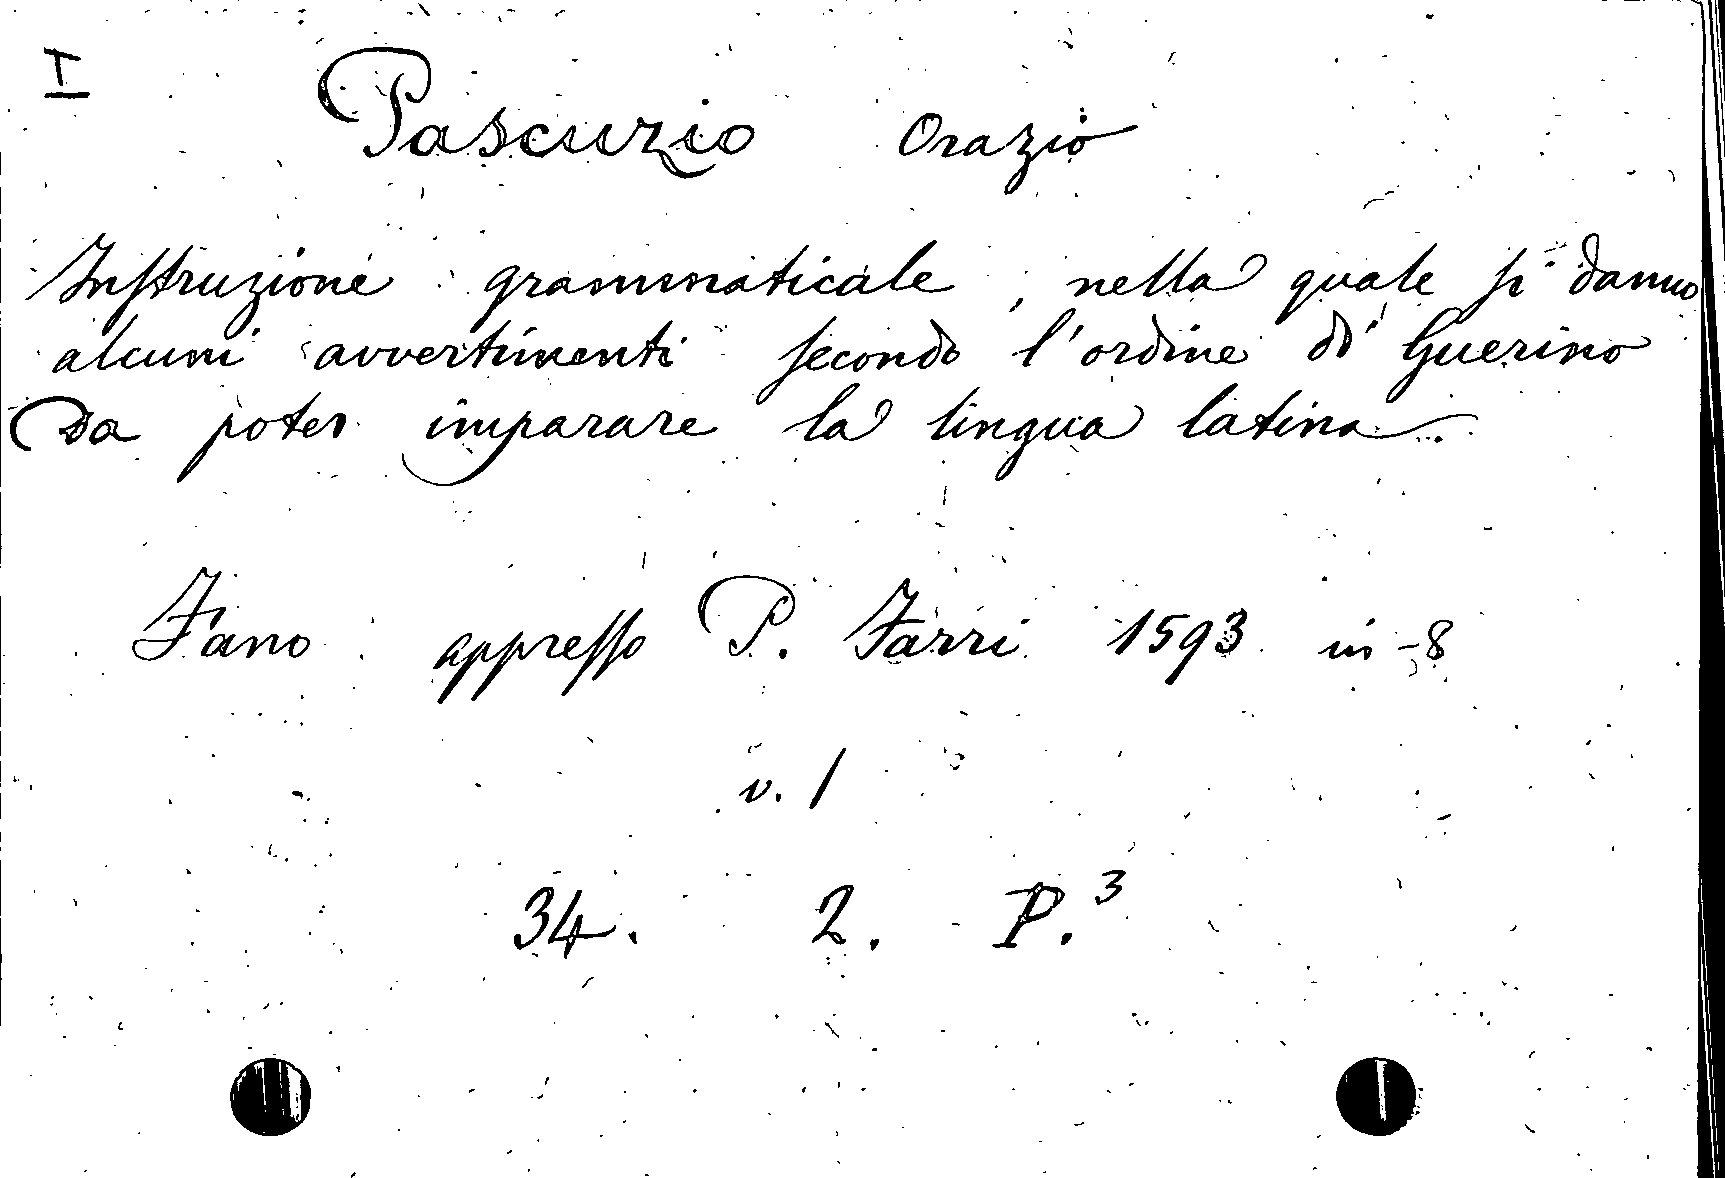 I
Pascuzio Orazio
Instruzione grammaticale, nella quale si danno
alcuni avvertimenti secondo l'ordine di Guerino
da poter imparare la lingua latina.
Fano appresso P. Farri 1593 in-8
v. 1
34. 2. P.³